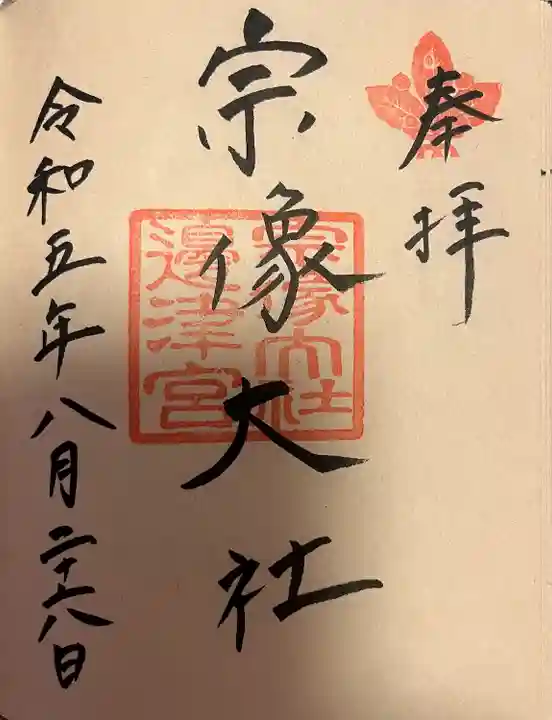 奉拝
宗像大社
宗像大社
邊津宮
令和五年八月二十八日